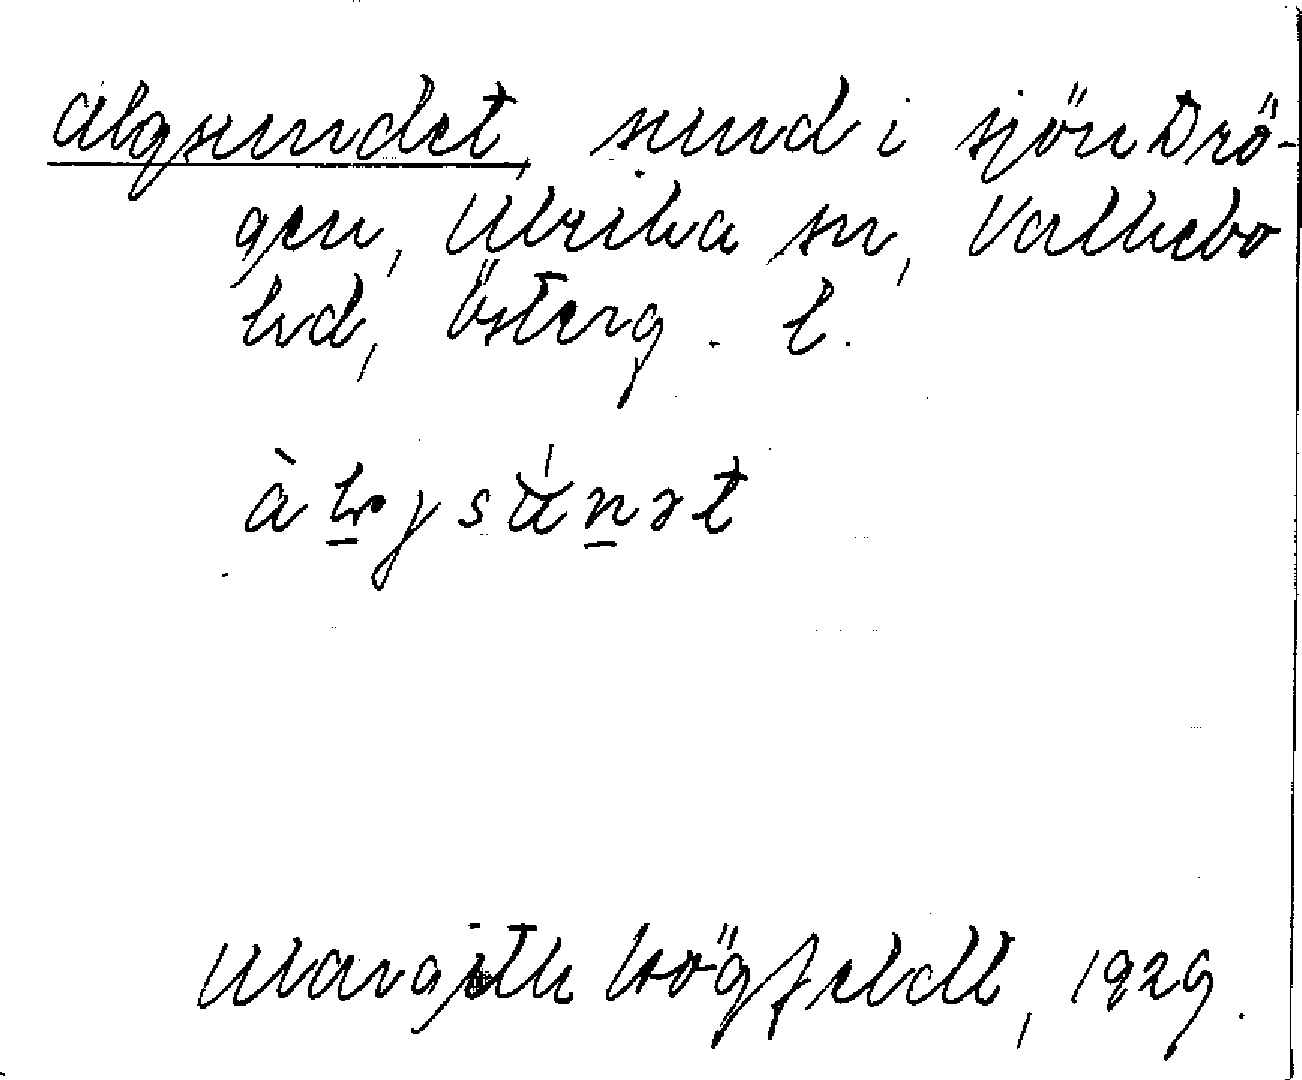 Algsundet, sund i sjön Drö-
gen, Ulrika sn, Valkebo
hd, Österg. l.
Margith Högfeldt, 1929.